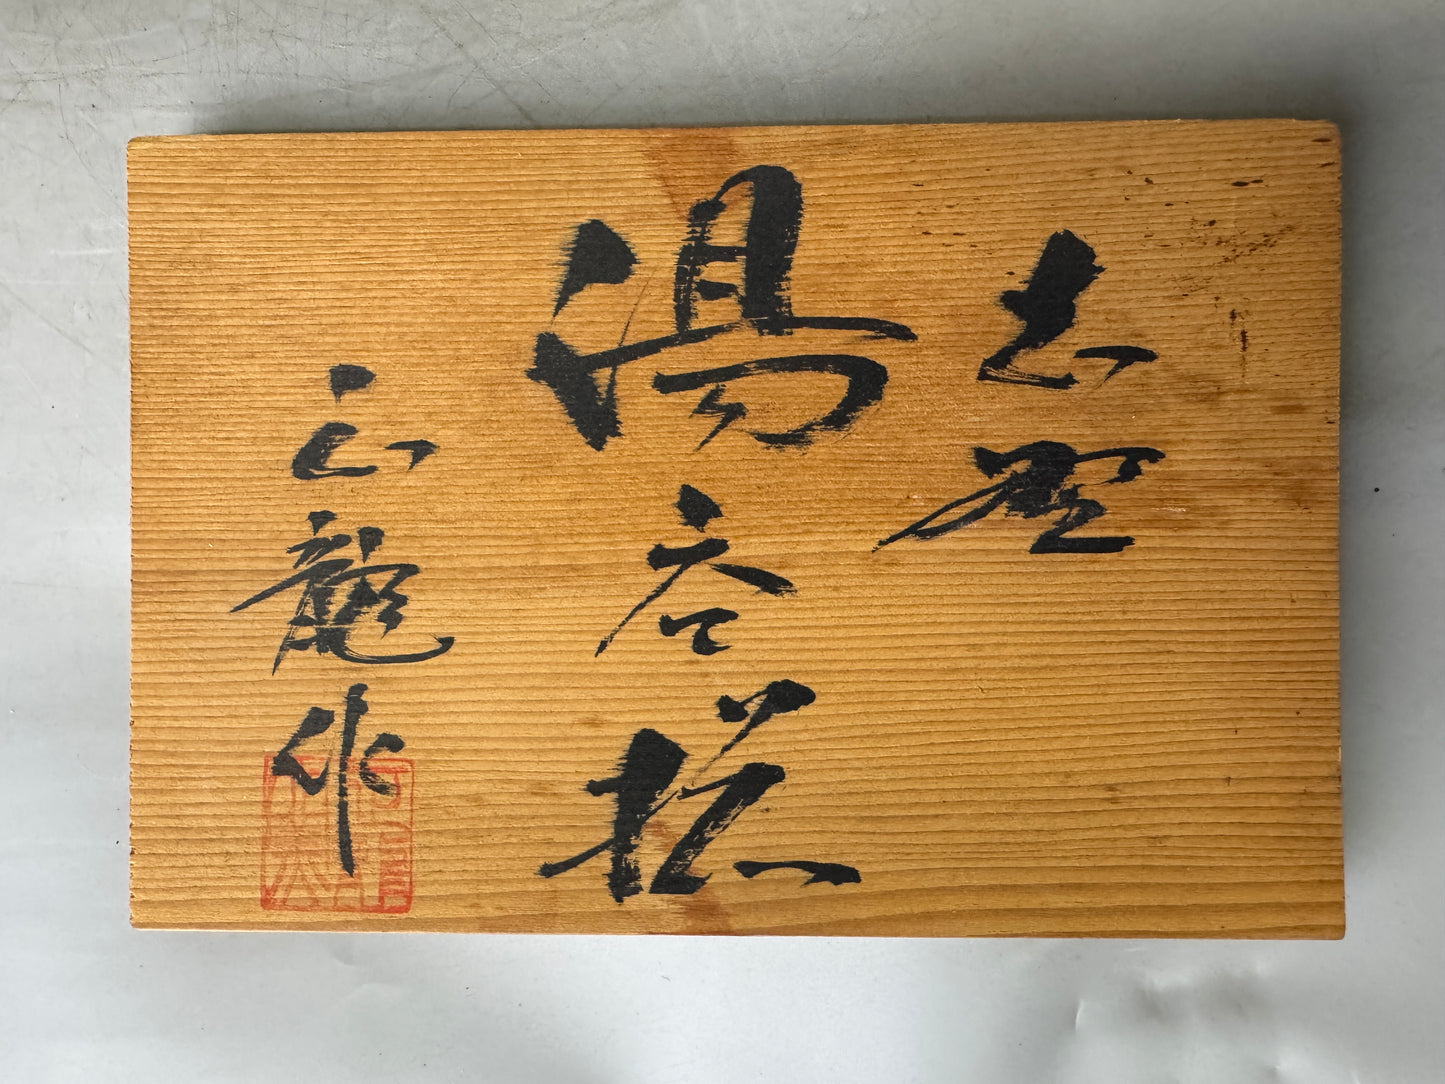 志野
湯呑揃
正龍作